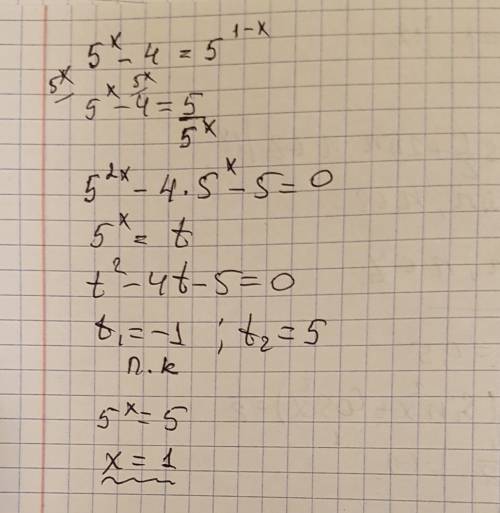 5^x - 4 = 5^{1-x}
5^x 5^x - 4 5^x = 5/5^x
5^{2x} - 4 · 5^x - 5 = 0
5^x = t
t^2 - 4t - 5 = 0
t_1 = -1 ; t_2 = 5
п.к
5^x = 5
x = 1